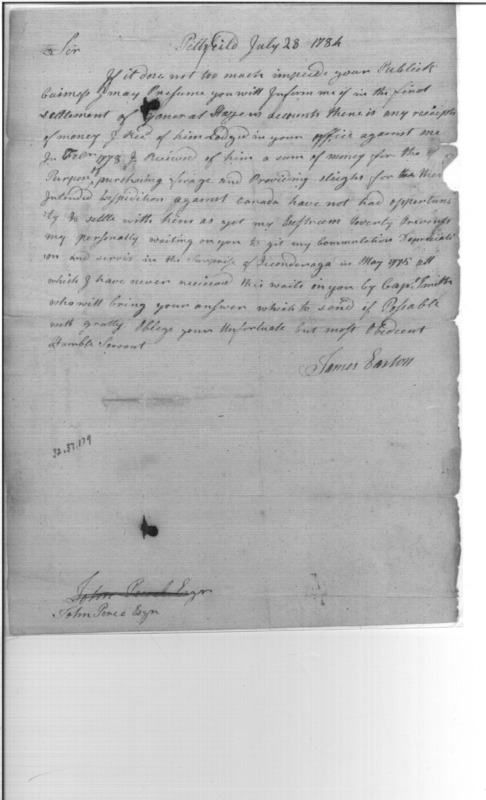 Sir Pittsfield July 28 1784
If it does not too much impeede your Publick
buiness I may Presume you will Inform me if in the final
settlement of General Hazens accounts there is any receipts
of money I Recd of him Lodged in your office against me
In 1778 I Received of him a sum of money for the
Purpos of purchasing forage and Providing sleighs for the then
Intended Expedition against Canada have not had oppertuni
ty to settle with him as yet my Poverty Prevents
my personally waiting on you to git my Commutation Depreciati
on and servis in the Surprise of Ticonderoga in May 1775 all
which I have never received this waits on you by Capt Smith
who will bring your answer which to send if Possable
will gratly Oblege your Unfortunate but most Obedient
Humble Servant
James Easton
32.37.179
John Esqr
John Perce Esqr